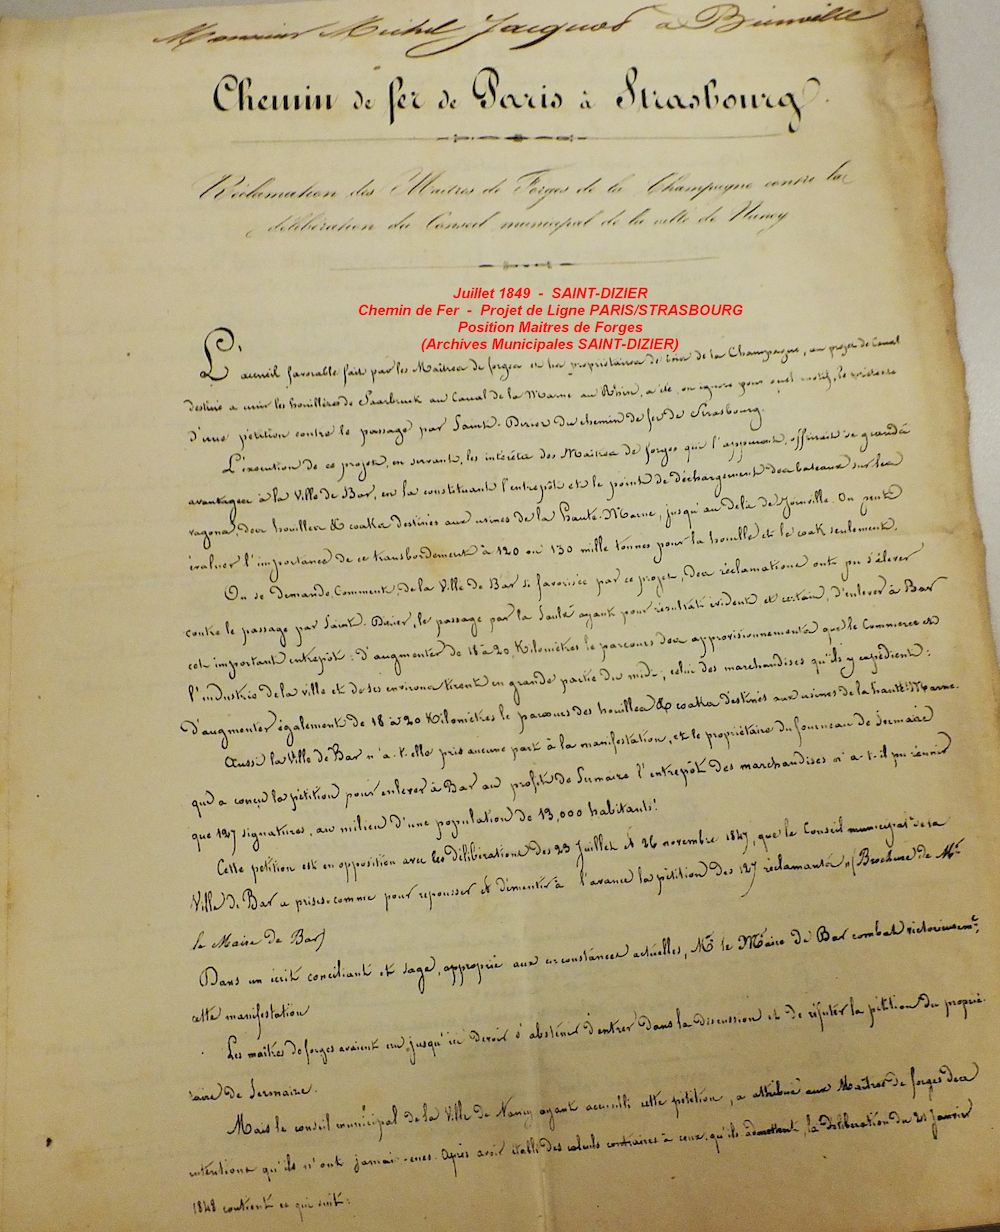 Monsieur Michel Jacquot à Bienville
Chemin de fer de Paris à Strasbourg.
Réclamation des Maîtres de Forges de la Champagne contre la
délibération du Conseil municipal de la ville de Nancy
Juillet 1849 - SAINT-DIZIER
Chemin de Fer - Projet de Ligne PARIS/STRASBOURG
Position Maitres de Forges
(Archives Municipales SAINT-DIZIER)
L'accueil favorable fait par les Maîtres de forges et les propriétaires de bois de la Champagne, au projet de Canal
destiné a unir les houillères de Saarbruck au Canal de la Marne au Rhin, a été, on ignore pour quel motif, le prétexte
d'une pétition contre le passage par Saint-Dizier du chemin de fer de Strasbourg.
L'éxécution de ce projet, en servant, les intérêts des Maîtres de forges qui l'appuient, offrirait de grands
avantages à la Ville de Bar, en la constituant l'entrepôt et le point de déchargement des bateaux sur les
vagons, des houilles & coaks destinés aux usines de la Haute-Marne, jusqu'au delà de Joinville. On peut
évaluer l'importance de ce transbordement à 120 ou 130 mille tonnes pour la houille et le coak seulement.
On se demande, Comment, de la Ville de Bar si favorisée par ce projet, des réclamations ont pu s'élever
contre le passage par Saint-Dizier, le passage par la Saulx ayant pour résultat évident et certain, d'enlever à Bar
cet important entrepôt; d'augmenter de 18 à 20 Kilomètres le parcours des approvisionnements que le Commerce et
l'industrie de la ville et de ses environs tirent en grande partie du midi; celui des marchandises qu'ils y expédient;
d'augmenter également de 18 à 20 Kilomètres le parcours des houilles & coaks destinés aux usines de la haute Marne.
Aussi la Ville de Bar n'a-t-elle pris aucune part à la manifestation, et le propriétaire du fourneau de Sermaize
qui a conçu la pétition pour enlever à Bar au profit de Sermaize l'entrepôt des marchandises n'a-t-il pu réunir
que 127 signatures, au milieu d'une population de 13,000 habitants!
Cette petition est en opposition avec les délibérations des 23 Juillet et 26 novembre 1847, que le Conseil municipal de la
Ville de Bar a prises comme pour repousser et démentir à l'avance la pétition des 127 réclamants (Brochure de Mr
le Maire de Bar)
Dans un écrit conciliant et sage, approprié aux circonstances actuelles, Mr le Maire de Bar combat victorieusemt
cette manifestation
Les maîtres de forges avaient cru jusqu'ici devoir s'abstenir d'entrer dans la discussion et de réfuter la pétition du proprié-
taire de Sermaize.
Mais le conseil municipal de la Ville de Nancy ayant accueilli cette pétition, a attribué aux Maîtres de forges des
intentions qu'ils n'ont jamais eues. Après avoir établi des calculs contraires à ceux qu'ils admettent, la délibération du Janvier
1848 contient ce qui suit: